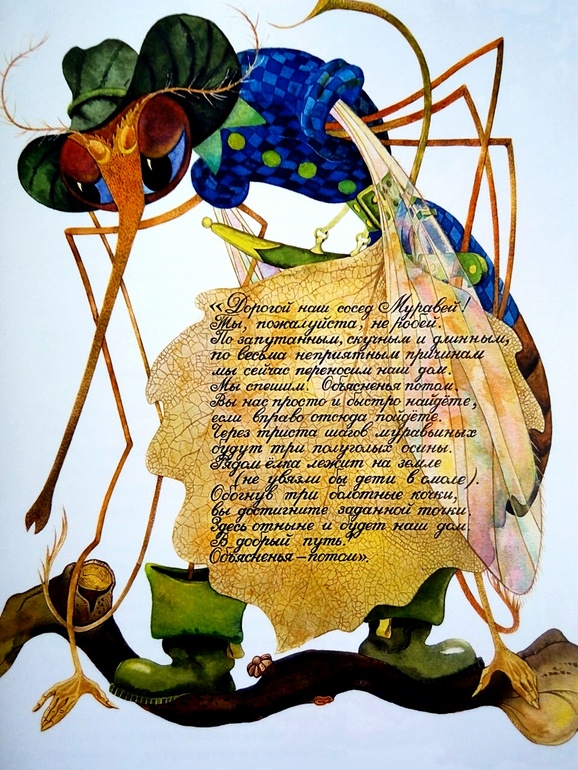 «Дорогой наш сосед Муравей!
Ты, пожалуйста, не робей.
По запутанным, скучным и длинным,
по весьма неприятным причинам
мы сейчас переносим наш дом.
Мы спешим! Объясненья потом.
Вы нас просто и быстро найдёте,
если вправо отсюда пойдёте.
Через триста шагов муравьиных
будут три полуголых осины.
Рядом ёлка лежит на земле
(не увязли бы дети в смоле).
Обогнув три болотные кочки,
вы достигните заданной точки.
Здесь отныне и будет наш дом.
В добрый путь!
Объясненья – потом».